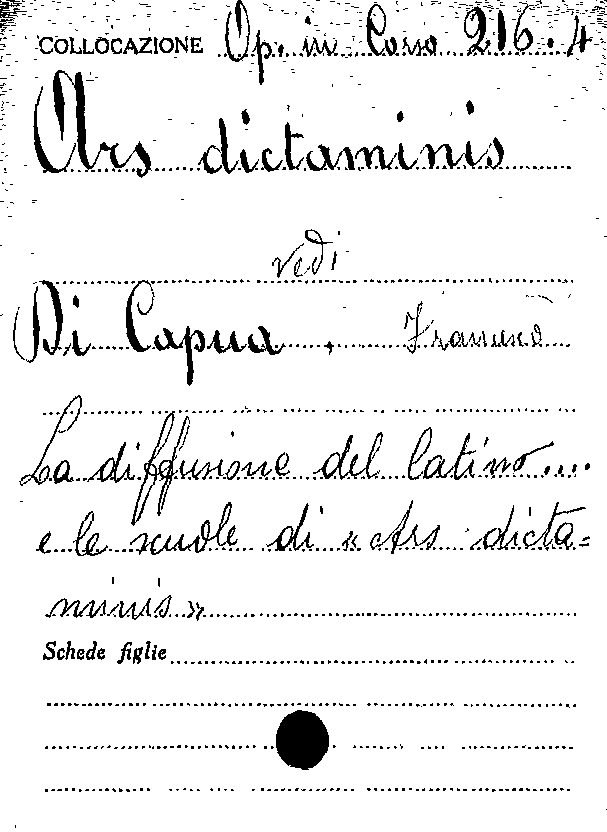 COLLOCAZIONE Op. in Corso 216.4
Ars dictaminis
vedi
Di Capua, Francesco
La diffusione del latino....
e le scuole di «Ars dicta=
minis»
Schede figlie